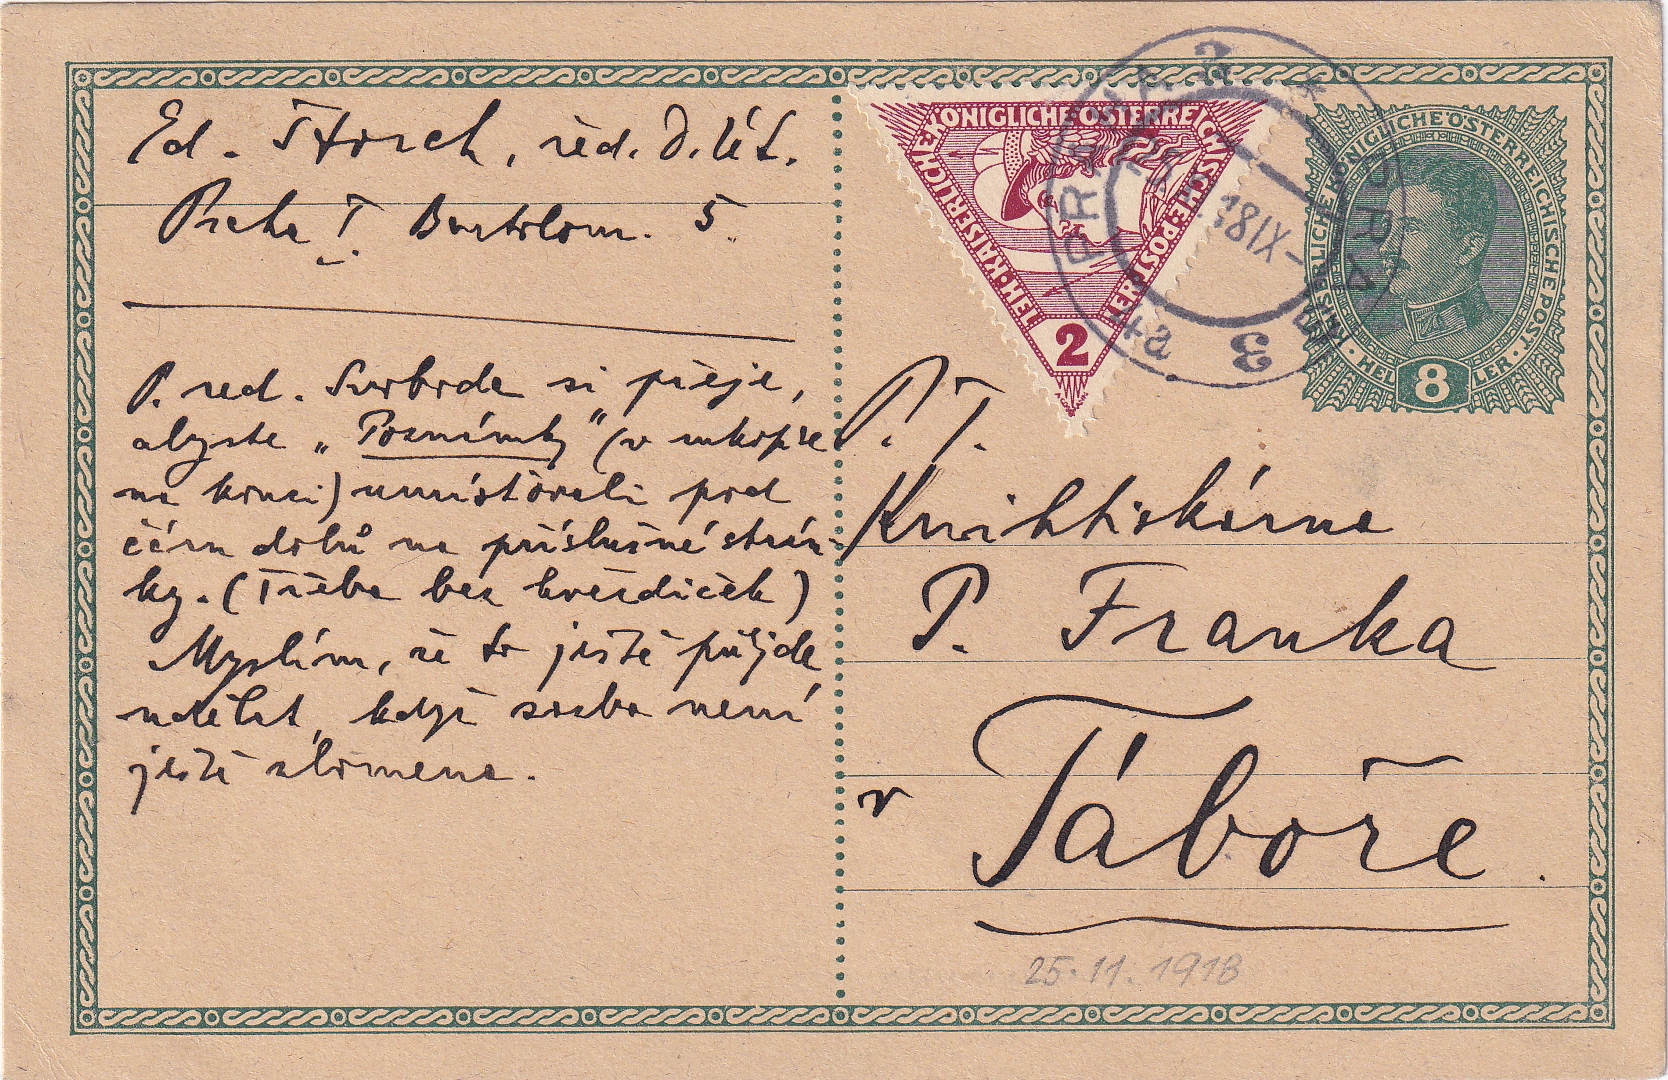 Ed. Štorch, red. D. lét.
Praha I. Bartolom. 5.
P. red. Svoboda si přeje,
abyste „Poznámky" (v rukopise
na konci) umístovali pod
čáru dolů na příslušné strán-
ky. (Třeba bez hvězdiček)
Myslím, že to ještě půjde
udělat, když sazba není
ještě zlámena.
KAISERLICHE KÖNIGLICHE ÖSTERREICHISCHE POST
2
HELLER
PRAHA
PRAG
3
4a
KAISERLICHE KÖNIGLICHE ÖSTERREICHISCHE POST
8
HELLER
P. T.
Knihtiskárna
P. Franka
v Táboře.
25.11.1918